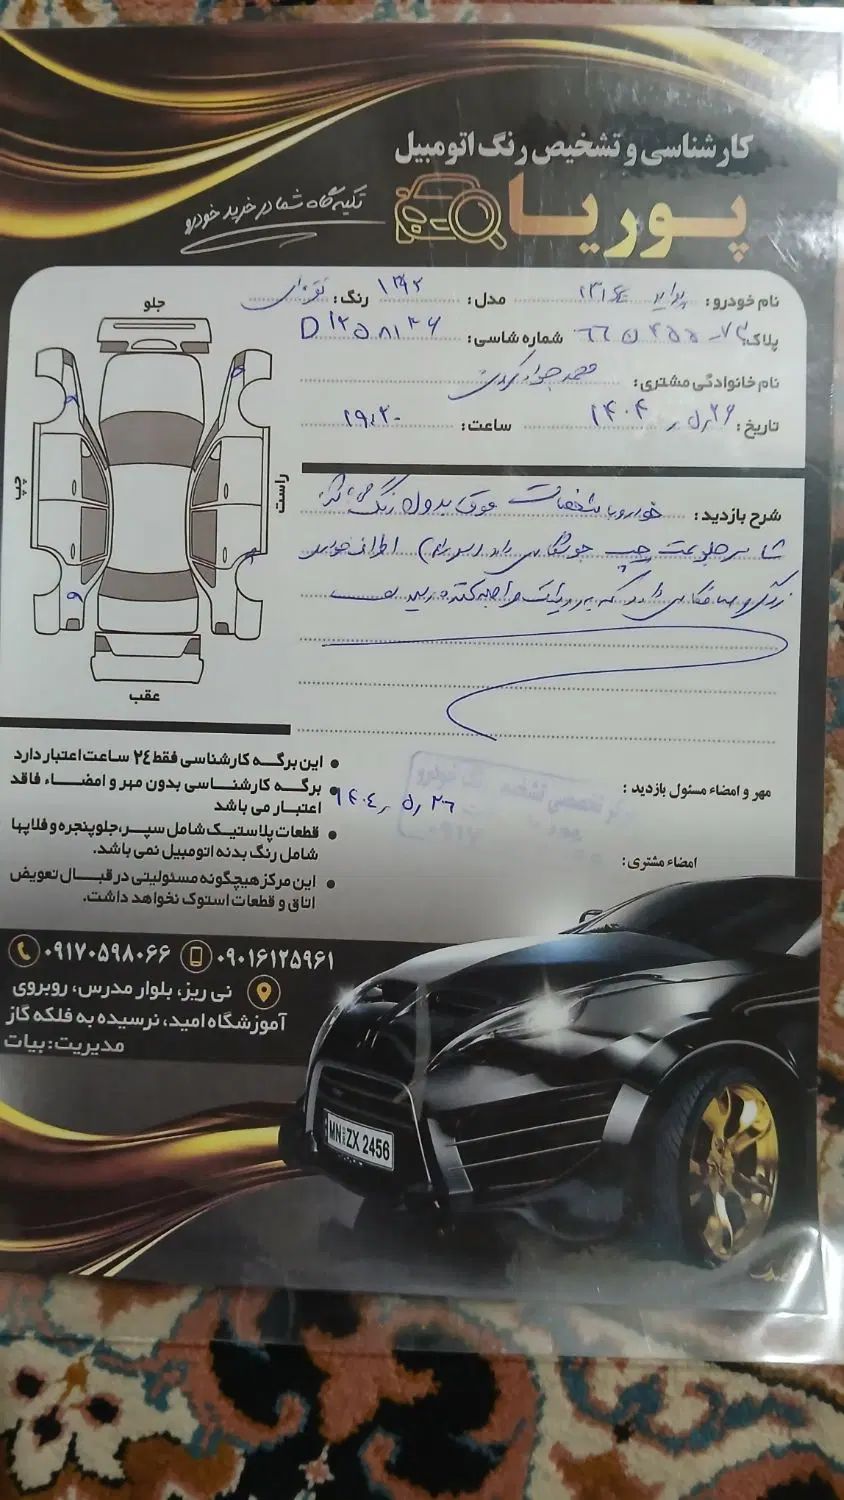 کارشناسی و تشخیص رنگ اتومبیل
پوریا
تکیه گاه شما در خرید خودرو
نام خودرو: پراید ۱۳۱ SE مدل: ۱۳۹۲ رنگ: نقره ای
پلاک: ۶۶ ن ۴۵۵ - ۷۳ شماره شاسی: D۱۲۵۸۱۳۶
نام خانوادگی مشتری: محمد جواد
تاریخ: ۱۴۰۴/۵/۲۶ ساعت: ۱۹:۳۰
جلو
چپ
راست
عقب
شرح بازدید: خودرو با مشخصات فوق بدون رنگ
سر جلو سمت چپ جوشکاری دارد اطراف خودرو
زدگی و صافکاری دارد که به رویت مراجعه کننده رسیده است
این برگه کارشناسی فقط ۲۴ ساعت اعتبار دارد
برگه کارشناسی بدون مهر و امضاء فاقد
اعتبار می باشد
قطعات پلاستیک شامل سپر، جلوپنجره و فلاپها
شامل رنگ بدنه اتومبیل نمی باشد.
این مرکز هیچگونه مسئولیتی در قبال تعویض
اتاق و قطعات استوک نخواهد داشت.
مهر و امضاء مسئول بازدید:
۱۴۰۴/۵/۲۶
امضاء مشتری:
۰۹۰۱۶۱۲۵۹۶۱ ۰۹۱۷۰۵۹۸۰۶۶
نی ریز، بلوار مدرس، روبروی
آموزشگاه امید، نرسیده به فلکه گاز
مدیریت: بیات
MN ZX 2456